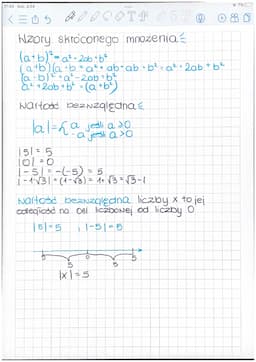 Wzory skróconego mnożenia
(a+b)²=a²+2ab+b²
(a+b)(a+b)=a²+ab+ab+b²=a²+2ab+b²
(a-b)²=a²-2ab+b²
a²+2ab+b²=(a+b)²
Wartość bezwzględna
|a|={a jeśli a≥0
-a jeśli a>0
|5|=5
|0|=0
|-5|=-(-5)=5
Wartość bezwzględna liczby x to jej
odległość na osi liczbowej od liczby 0
|5|=5 , |-5|=5
5 0 5
5 5
|x|=5